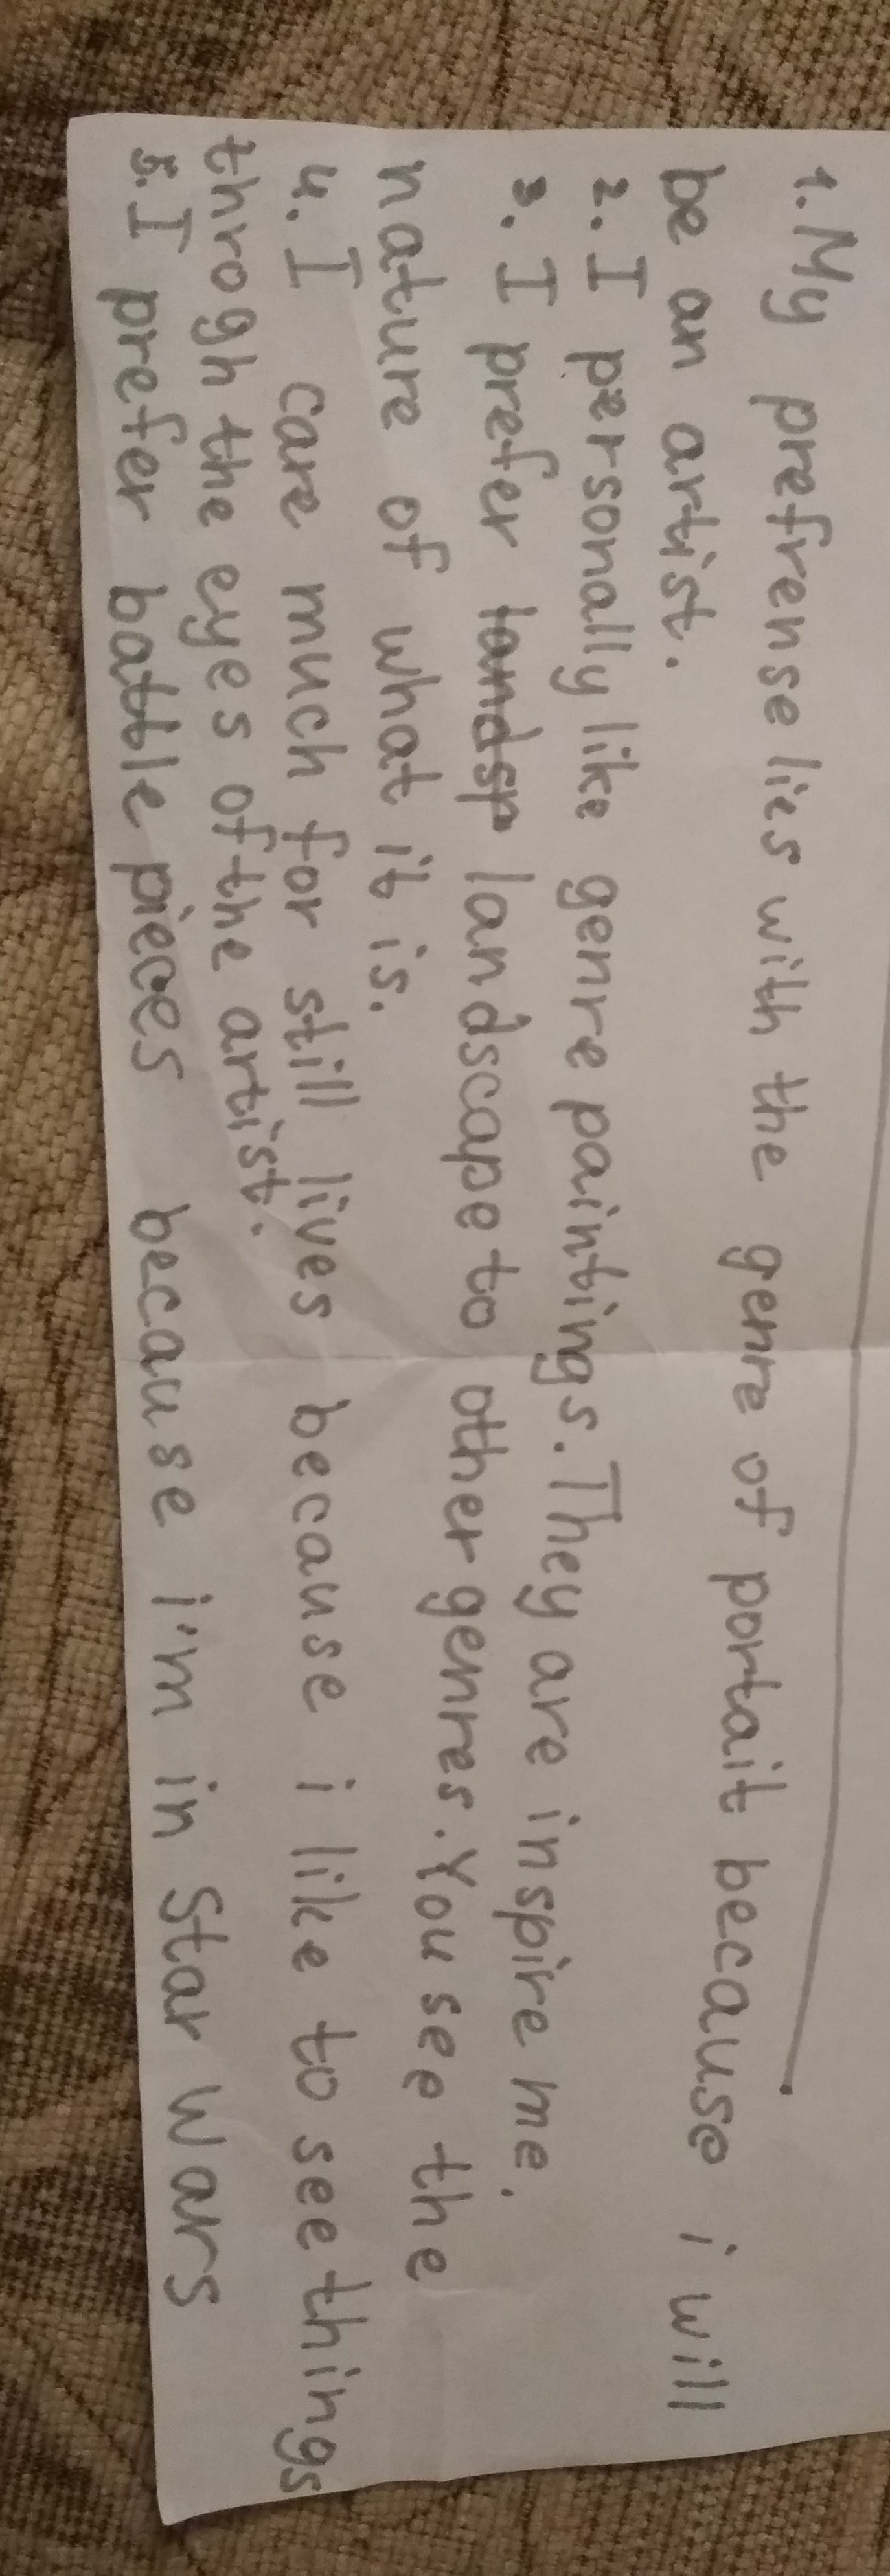 1. My prefrense lies with the genre of portait because i will
be an artist.
2. I personally like genre paintings. They are inspire me.
3. I prefer landsp landscape to other genres. You see the
nature of what it is.
4. I care much for still lives because i like to see things
throgh the eyes of the artist.
5. I prefer battle pieces because i'm in Star Wars